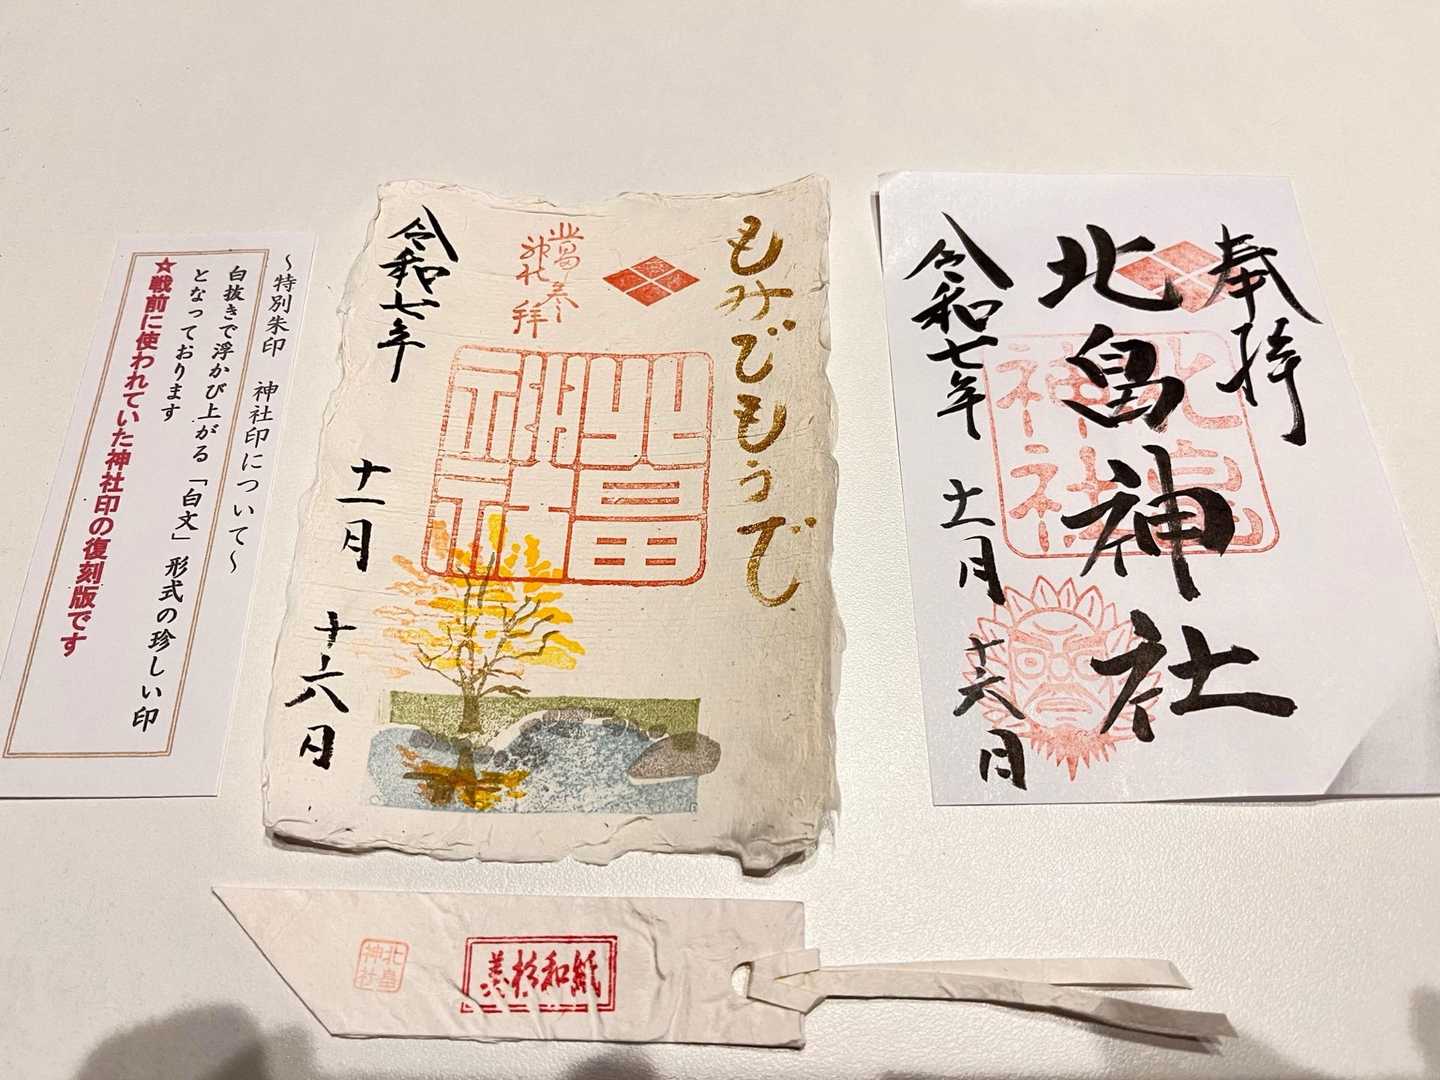 ～特別朱印　神社印について～
白抜きで浮かび上がる「白文」形式の珍しい印
となっております
★戦前に使われていた神社印の復刻版です
もみぢもうで
北畠神社
奉拝
北畠神社
令和七年
十一月
十六日
奉拝
北畠神社
北畠神社
令和七年
十一月
十六日
北畠神社
美杉和紙